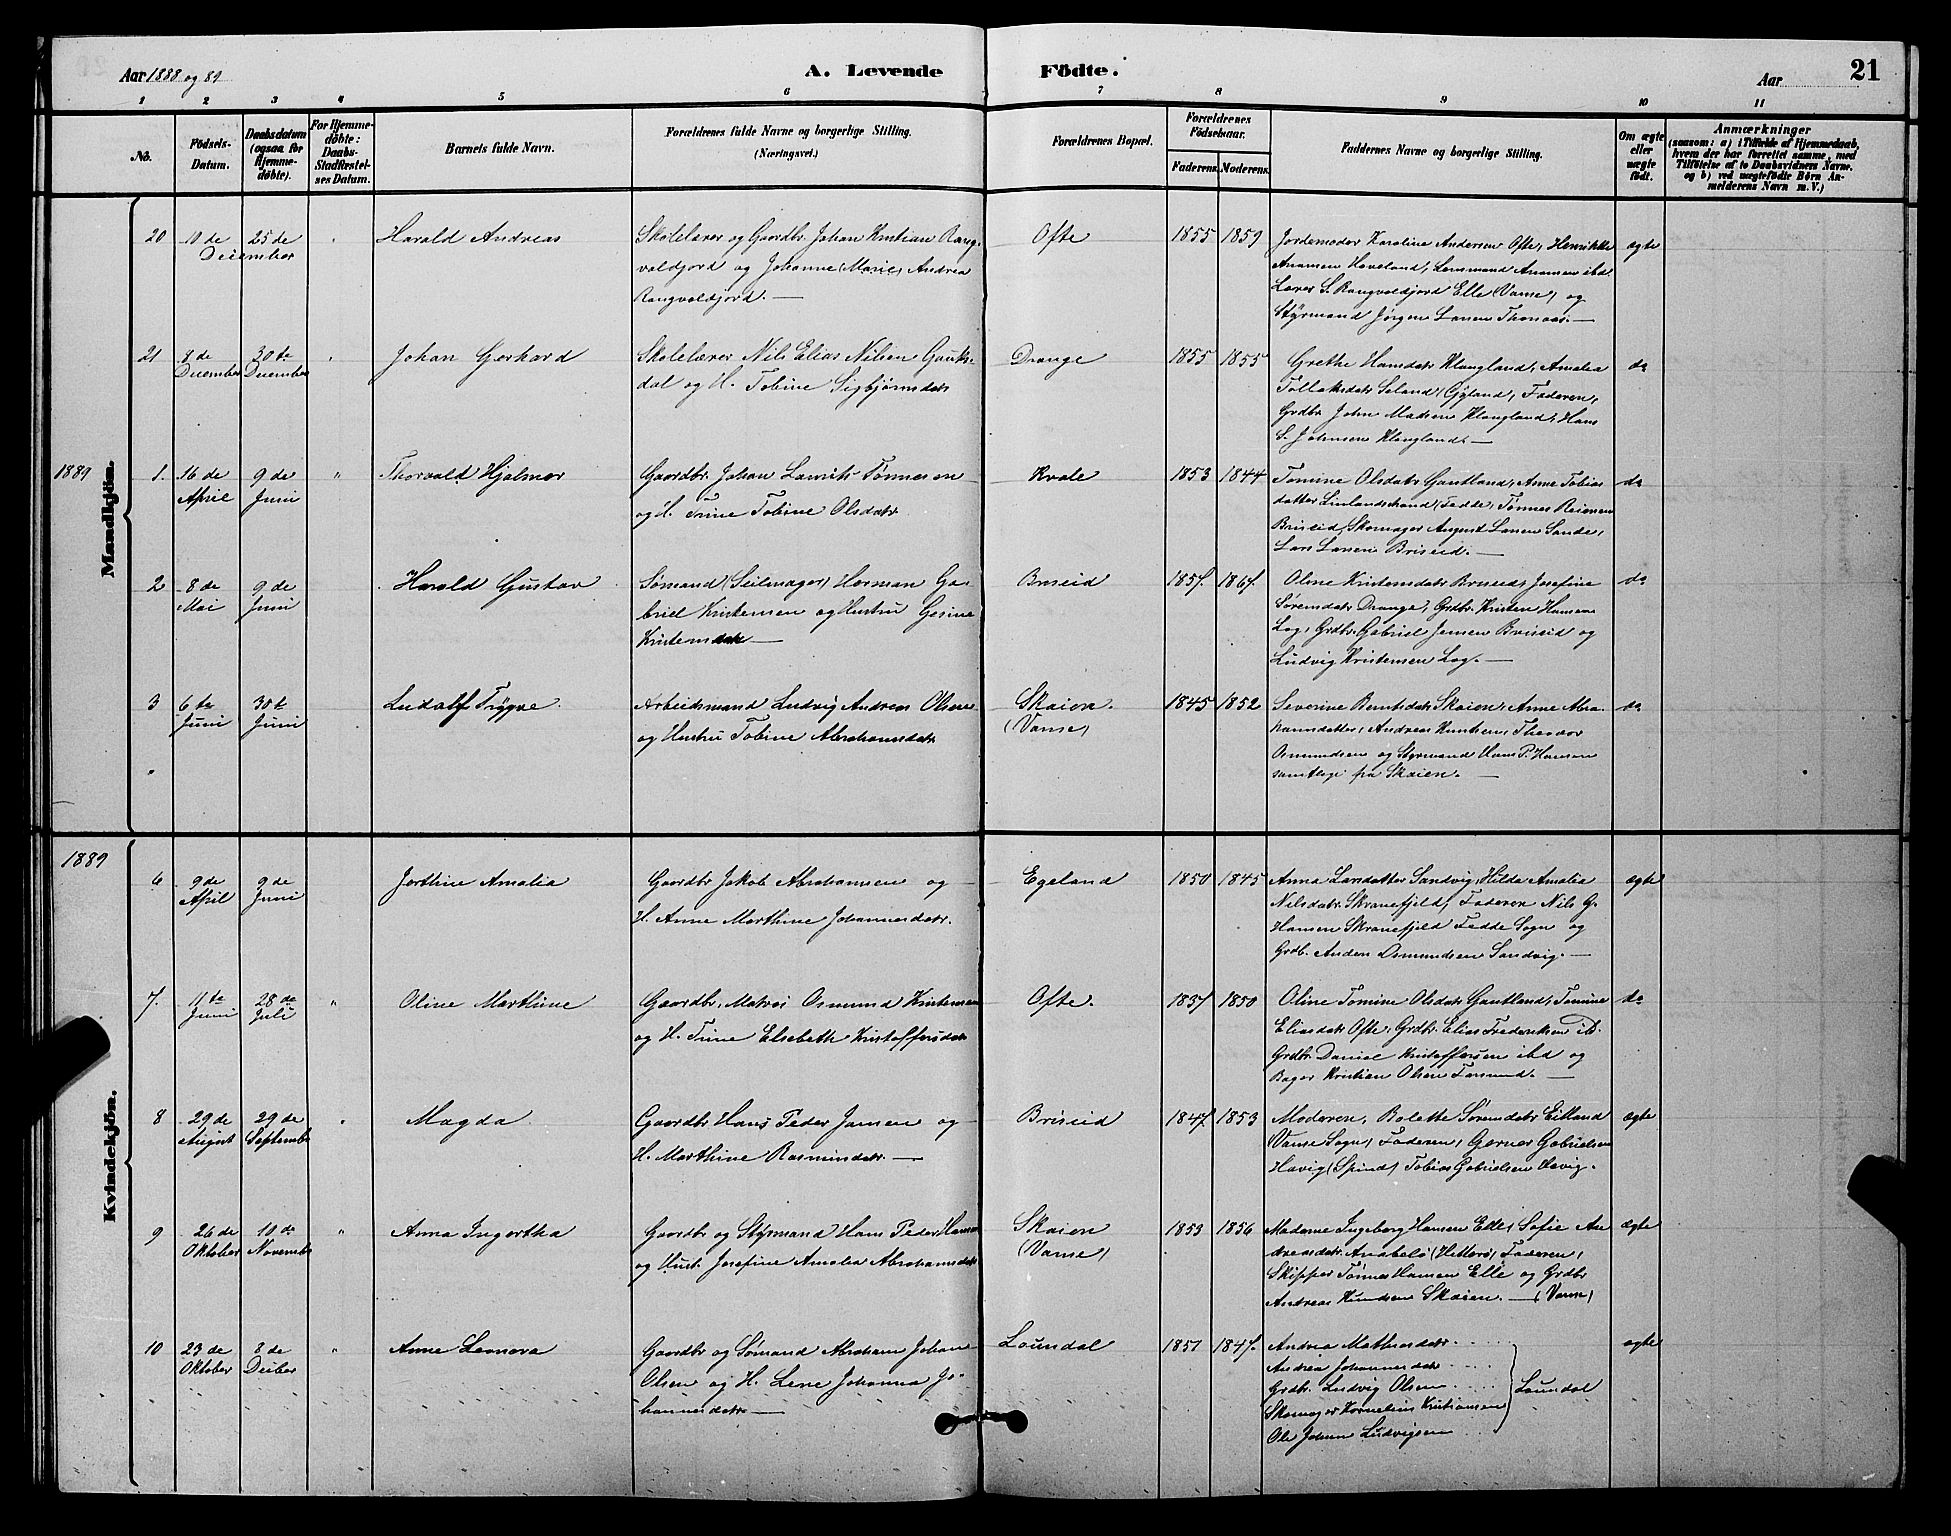 Aar 1888 og 89
A. Levende Födte.
Aar
21
1 2 3 4 5 6 7 8 9 10 11
No.
Födsels-Datum.
Daabsdatum (ogsaa for Hjemme-döbte).
For Hjemme-döbte: Daabs-Stadfæstel-ses Datum.
Barnets fulde Navn.
Forældrenes fulde Navne og borgerlige Stilling.
(Næringsvei.)
Forældrenes Bopæl.
Forældrenes Födselsaar.
Faderens. Moderens.
Faddernes Navne og borgerlige Stilling.
Om ægte eller uægte födt.
Anmærkninger
(saasom: a) i Tilfælde af Hjemmedaab,
hvem der har forrettet samme, med
Tilföielse af to Daabsvidners Navne.
og b) ved uægtefödte Börn An-
melderens Navn m. V.)
Mandkjön.
20 10de December 25de " Harald Andreas
Skolelærer og Gaardbr. Johan Kristian Rang-
valdjord og Johanne Marie Andrea
Rangvaldjord. —
Ofte 1855 1859
Jordemoder Karoline Andersen Ofte, Henrikke
Aanensen Haveland, Lensmand Aanensen ibd
Lærer S. Rangvaldjord Elle (Vanse) og
Styrmand Jørgen Larsen Thonaas. —
ægte
21 8de December 30te December " Johan Gerhard
Skolelærer Nils Elias Nilsen Gauks-
dal og H. Tobine Sigbjørnsdatr
Drange 1855 1855
Grethe Hansdatr Klungland, Amalia
Tollaksdatr Seland (Gyland), Faderen,
Grdbr John Madsen Klungland, Hans
S. Johnsen Klungland. —
do
1889
1. 16de April 9de Juni " Thorvald Hjalmar
Gaardbr. Johan Laurits Tønnesen
og H. Trine Tobine Olsdatr
Kvale 1853 1844
Tomine Olsdatr Gautland, Anne Tobias
datter Linlandstrand (Fedde), Tønnes Reiersen
Briseid, Skomager August Larsen Sande,
Lars Larsen Briseid. —
do
2 8de Mai 9de Juni Harald Gustav
Sømand (Seilmager) Herman Ga-
briel Kristensen og Hustru Gesine
Kristensdatr —
Briseid 1857. 1867.
Oline Kristensdatr Briseid, Josefine
Sørensdatr Drange, Grdbr. Kristen Hansen
Log, Grdbr. Gabriel Jensen Briseid og
Ludvig Kristensen Log. —
do
3 6te Juni 30te Juni Ludolf Trygve
Arbeidsmand Ludvig Andreas Olsen
og Hustru Tobine Abrahamsdatr
Skaien (Vanse) 1845 1852
Severine Berntsdatr Skaien, Anne Abra-
hamsdatter, Andreas Knutsen, Theodor
Osmundsen og Styrmand Hans P. Hansen
samtlige fra Skaien. —
do
Kvindekjön.
1889
6 9de April 9de Juni Jorthine Amalia
Gaardbr Jakob Abrahamsen og
H. Anne Marthine Johannesdatr.
Egeland 1850 1845
Anna Larsdatter Sandvig, Hilda Amalia
Nilsdatr. Skranefjeld, Faderen Nils G.
Hansen Skranefjeld Fedde Sogn og
Grdb. Anders Osmundsen Sandvig. —
ægte
7. 11te Juni 28de Juli " Oline Marthine
Gaardbr. Matros Osmund Kristensen
og H. Trine Elsebeth Kristoffersdatr
Ofte. 1837 1850
Oline Tomine Olsdatr Gautland, Tomine
Eliasdatr Ofte, Grdbr. Elias Frederiksen ib.
Grdbr. Daniel Kristoffersen ibd og
Bager Kristian Olsen Farsund. —
do
8 29de August 29de Septembr " Magda
Gaardbr Hans Peder Jansen og
H. Marthine Rasmusdatr. —
Briseid 1847 1853
Moderen, Bolette Sørensdatr Eitland
Vanse Sogn, Faderen, Gerner Gabrielsen
Havig (Spind) Tobias Gabrielsen Havig.
ægte
9 26de Oktober 10de Novembr " Anna Ingertha
Gaardbr og Styrmand Hans Peder Hansen
og Hust. Josefine Amalia Abrahamsdatr
Skaien (Vanse) 1853 1856
Madame Ingeborg Hansen Elle, Sofie An-
dreasdatr. Anabelø (Hitterø) Faderen,
Skipper Tønnes Hansen Elle og Grdbr
Andreas Knudsen Skaien. — (Vanse)
ægte
10 23de Oktober 8de Decber " Anne Leonora
Gaardbr og Sømand Abraham Johan
Olsen og H. Lene Johanna Jo-
hannesdatr —
Laundal 1851 1847.
Andrea Mathiasdatr.
Andrea Johannesdatr
Grdbr. Ludvig Olsen
Skomager Kornelius Kristiansen
Ole Johan Ludvigsen
Laundal
ægte